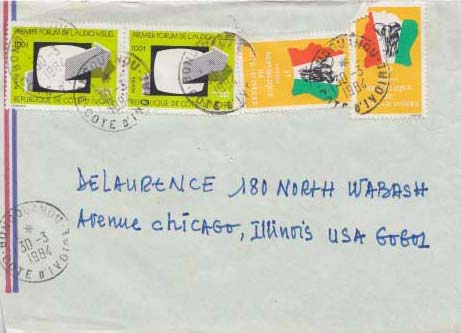 PREMIER FORUM DE L'AUDIOVISUEL
100F
REPUBLIQUE DE COTE D'IVOIRE
PREMIER FORUM DE L'AUDIOVISUEL
100F
REPUBLIQUE DE COTE D'IVOIRE
REPUBLIQUE
DE
CÔTE-D'IVOIRE
BONGOUANOU
30-3
1984
COTE D'IVOIRE
DELAURENCE 180 NORTH WABASH
Avenue CHICAGO, Illinois USA 60601
BONGOUANOU
30-3
1984
COTE D'IVOIRE